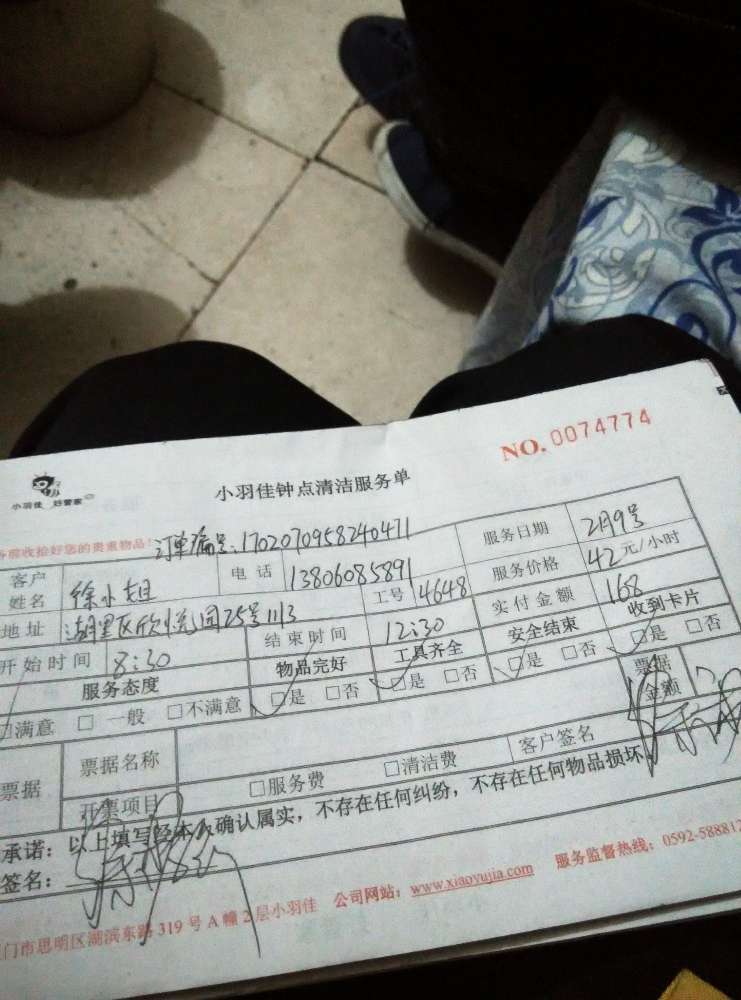 NO. 0074774
小羽佳 好管家
小羽佳钟点清洁服务单
务前收拾好您的贵重物品!
订单编号:1702070958240471
服务日期 2月9号
客户姓名 徐小姐 电话 13806085891 工号 4648 服务价格 42元/小时
地址 湖里区欣悦园75号1113 实付金额 168
开始时间 8:30 结束时间 12:30
服务态度 物品完好 工具齐全 安全结束 收到卡片
□满意 □ 一般 □不满意 □是 □否 □是 □否 □是 □否 □是 □否
票据 票据名称 票据金额
开票项目 □服务费 □清洁费 客户签名
承诺:以上填写经本人确认属实,不存在任何纠纷,不存在任何物品损坏
签名:
门市思明区湖滨东路319号A幢2层小羽佳 公司网站:www.xiaoyujia.com 服务监督热线:0592-588812